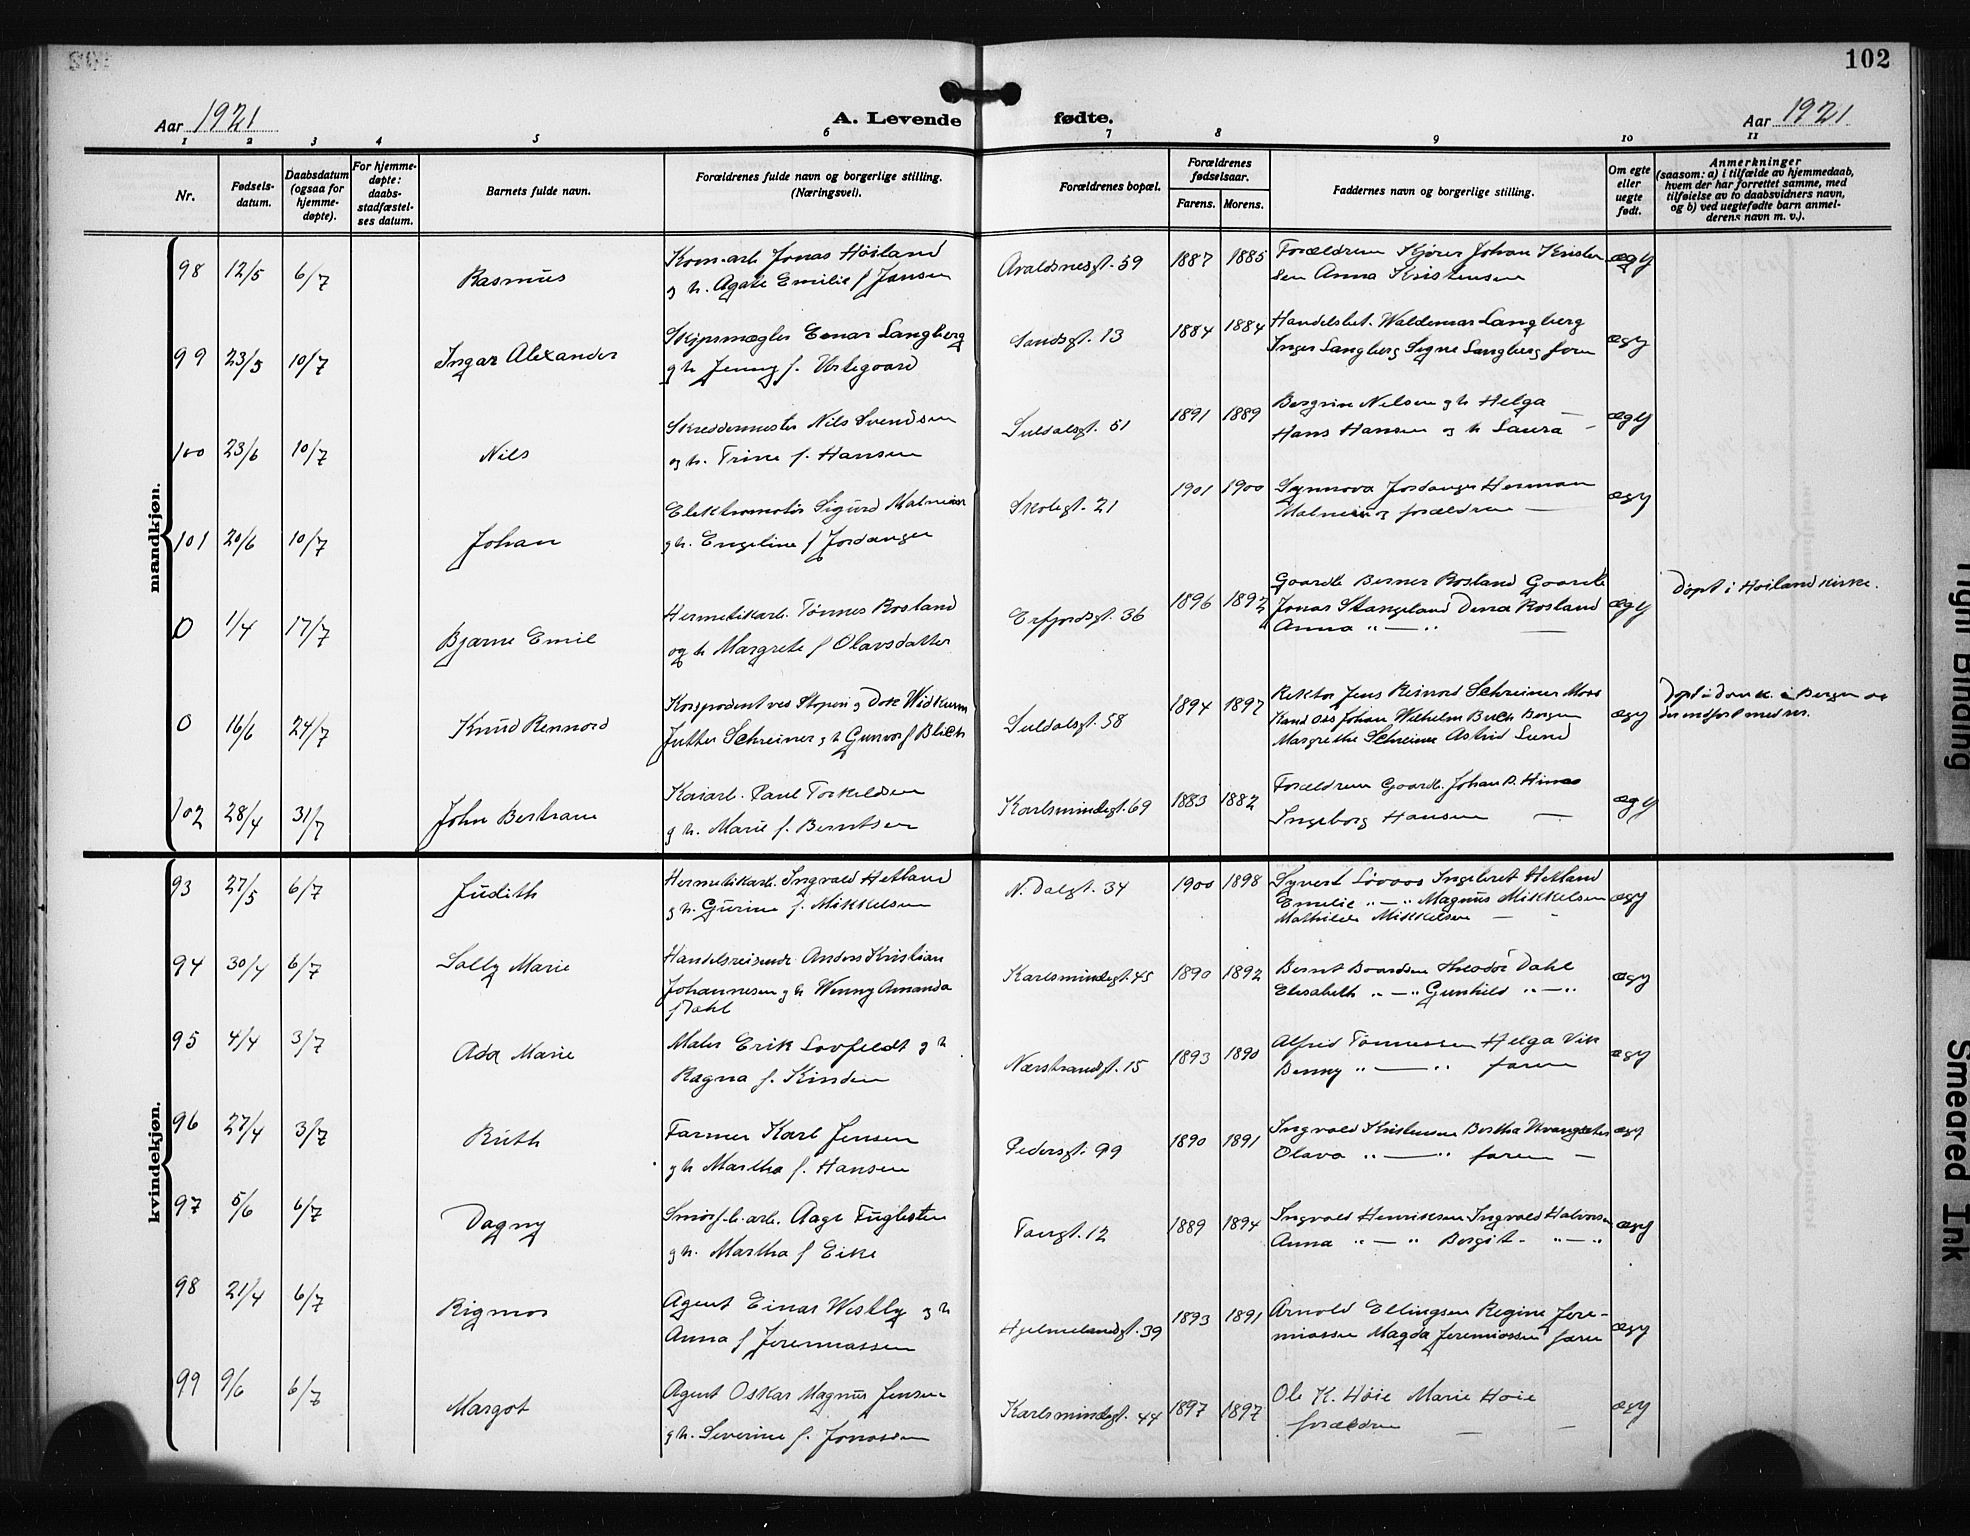 102
Aar 1921
A. Levende fødte.
Aar 1921
1 2 3 4 5 6 7 8 9 10 11
Nr.
Fødsels-
datum.
Daabsdatum
(ogsaa for
hjemme-
døpte).
For hjemme-
døpte:
daabs-
stadfæstel-
ses datum.
Barnets fulde navn.
Forældrenes fulde navn og borgerlige stilling.
(Næringsvei).
Forældrenes bopæl.
Forældrenes
fødselsaar.
Farens. Morens.
Faddernes navn og borgerlige stilling.
Om egte
eller
uegte
født.
Anmerkninger
(saasom: a) i tilfælde av hjemmedaab,
hvem der har forrettet samme, med
tilføielse av to daabsvidners navn,
og b) ved uegtefødte barn anmel-
derens navn m. v.).
mandkjøn.
98 12/5 6/7 Rasmus
Kom.arb. Jonas Høiland
og h. Agate Emilie f Jansen
Avaldsnesgt. 59 1887 1885
Forældrene Kjører Johan Kristen
sen Anna Kristensen
ægt
99 23/5 10/7 Ingar Alexander
Skipsmægler Einar Langberg
og h Jenny f.
Sandsgt. 13 1884 1884
Handelsbet. Waldemar Langberg
Inger Langberg Signe Langberg faren
ægt
100 23/6 10/7 Nils
Skreddermester Nils Svendsen
og h. Trine f. Hansen
Suldalsgt. 51 1891 1889
Nilsen og h Helga —
Hans Hansen og h Laura —
ægt
101 20/6 10/7 Johan
Sigurd Malmein
g h. Engeline f Jordanger
Skolegt. 21 1901 1900
Synnova Jordanger Herman
Malmein og forældrene —
ægt
0 1/4 17/7 Bjarne Emil
Hermetikarb. Tønnes Rosland
og h Margrete f Olavsdatter
Erfjordsgt. 36 1896 1892
Gaardb Berner Rosland Gaardb
Jonas Stangeland Dina Rosland
Anna " — " —
ægt
Døpt i Høiland kirke.
0 16/6 24/7 Knud Rennord
Korspondent ved
Schreiner g h Gunvor f Blich
Suldalsgt. 58 1894 1897
Rektor Jens Schreiner Moss
Johan Wilhelm Bergen
Margrethe Schreiner Astrid Lund
ægt
102 28/4 31/7 John Bertram
Kaiarb. Paul Torkildsen
g h. Marie f. Berntsen
Karlsmindegt. 69 1883 1882
Forældrene Gaardb. Johan
Ingeborg Hansen —
ægt
kvindekjøn.
93 27/5 6/7 Judith
Hermetikarb. Ingvald Hetland
g h. Gurine f. Mikkelsen
N. Dalgt. 34 1900 1898
Syvert Ingeberet Hetland
Emelie " — " Magnus Mikkelsen
Mathilde Mikkelsen —
ægt
94 30/4 6/7 Solly Marie
Handelsreisende Anders Kristian
Johannesen g h Wenny Amanda
f Dahl
Karlsmindegt. 45 1890 1892
Bernt Theodor Dahl
Elisabeth " — " Gunhild " — "
ægt
95 4/4 3/7 Ada Marie
Maler Erik Lovfeldt g h
Ragna f. Kinden
Nærstrandgt. 15 1893 1890
Alfred Tønnessen Helga Vik
Benny " — " faren
ægt
96 27/4 3/7 Ruth
Farmer Karl Jensen
g h Martha f. Hansen
Pedersgt. 99 1890 1891
Ingvald Kristensen Bertha
Olava " — " faren —
ægt
97 5/6 6/7 Dagny
Aage Fuglesten
g h. Martha f Eike
Tangt. 12 1889 1894
Ingvald Henriksen Ingvald Halvorsen
Anna " — " Bergit " — "
ægt
98 21/4 6/7 Rigmor
Agent Einar Westby g h
Anna f Jeremiassen
Hjelmelandsgt. 39 1893 1891
Arnold Ellingsen Regine Jere-
miassen Magda Jeremiassen faren
ægt
99 9/6 6/7 Margot
Agent Oskar Magnus Jensen
g h. Severine f. Jonassen
Karlsmindegt. 44 1897 1897
Ole K. Høie Marie Høie
forældre — —
ægt
Tight Binding
Smeared Ink